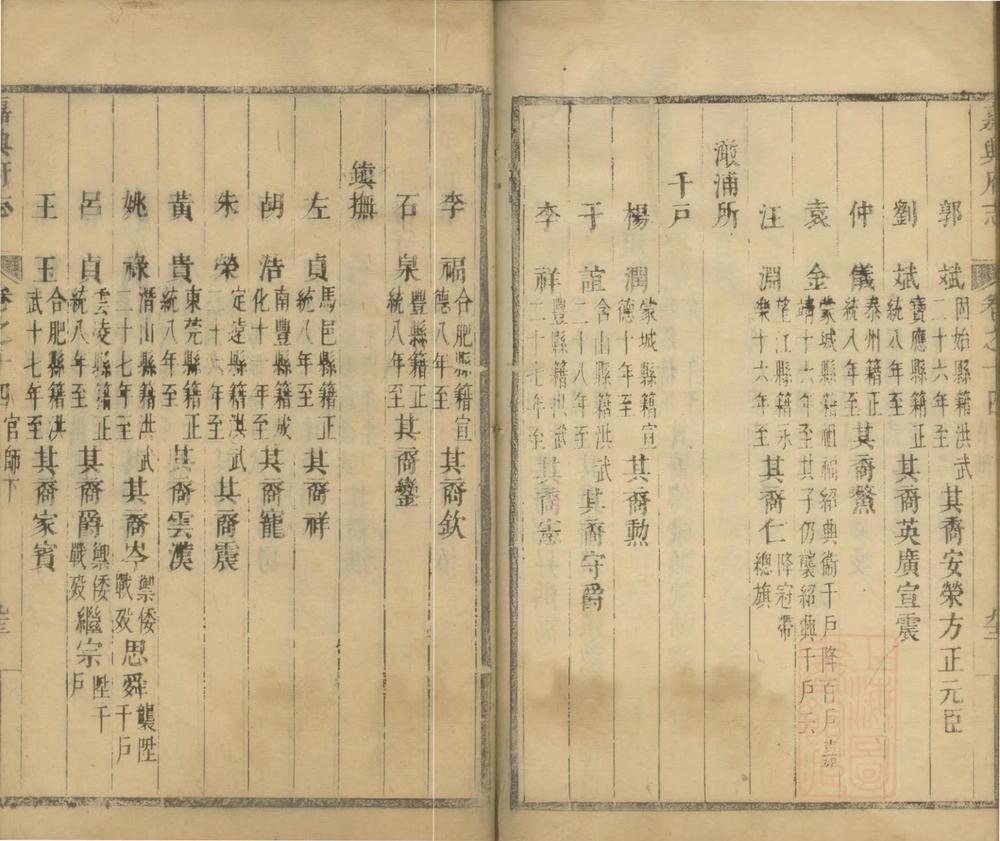 嘉興府志 卷之十四
郭斌 固始縣籍洪武二十六年至 其裔安榮方正元臣
劉斌 寶應縣籍正統八年至 其裔英廣宣震
仲儀 泰州籍正統八年至 其裔鰲
袁金 蒙城縣籍祖福紹興衞千戶降百戶嘉靖十六年至其子仍襲紹興千戶
汪淵 望江縣籍永樂十六年至 其裔仁 降冠帶總旗
澉浦所
千戶
楊潤 蒙城縣籍宣德十年至 其裔勲
于誼 含山縣籍洪武二十八年至 其裔守爵
李祥 豐縣籍洪武二十七年至 其裔憲
李福 合肥縣籍宣德八年至 其裔欽
石泉 豐縣籍正統八年至 其裔鑾
鎮撫
左貞 馬邑縣籍正統八年至 其裔祥
胡浩 南豐縣籍成化十一年至 其裔寵
朱榮 定遠縣籍洪武二十六年至 其裔震
黃貴 東莞縣籍正統八年至 其裔雲漢
姚祿 潛山縣籍洪武二十七年至 其裔岑 禦倭戰歿 思舜 襲陞千戶
呂貞 雲凌縣籍正統八年至 其裔爵 禦倭戰歿 繼宗 陞千戶
王玉 合肥縣籍洪武十七年至 其裔家賓
嘉興府志 卷之十四 官師下